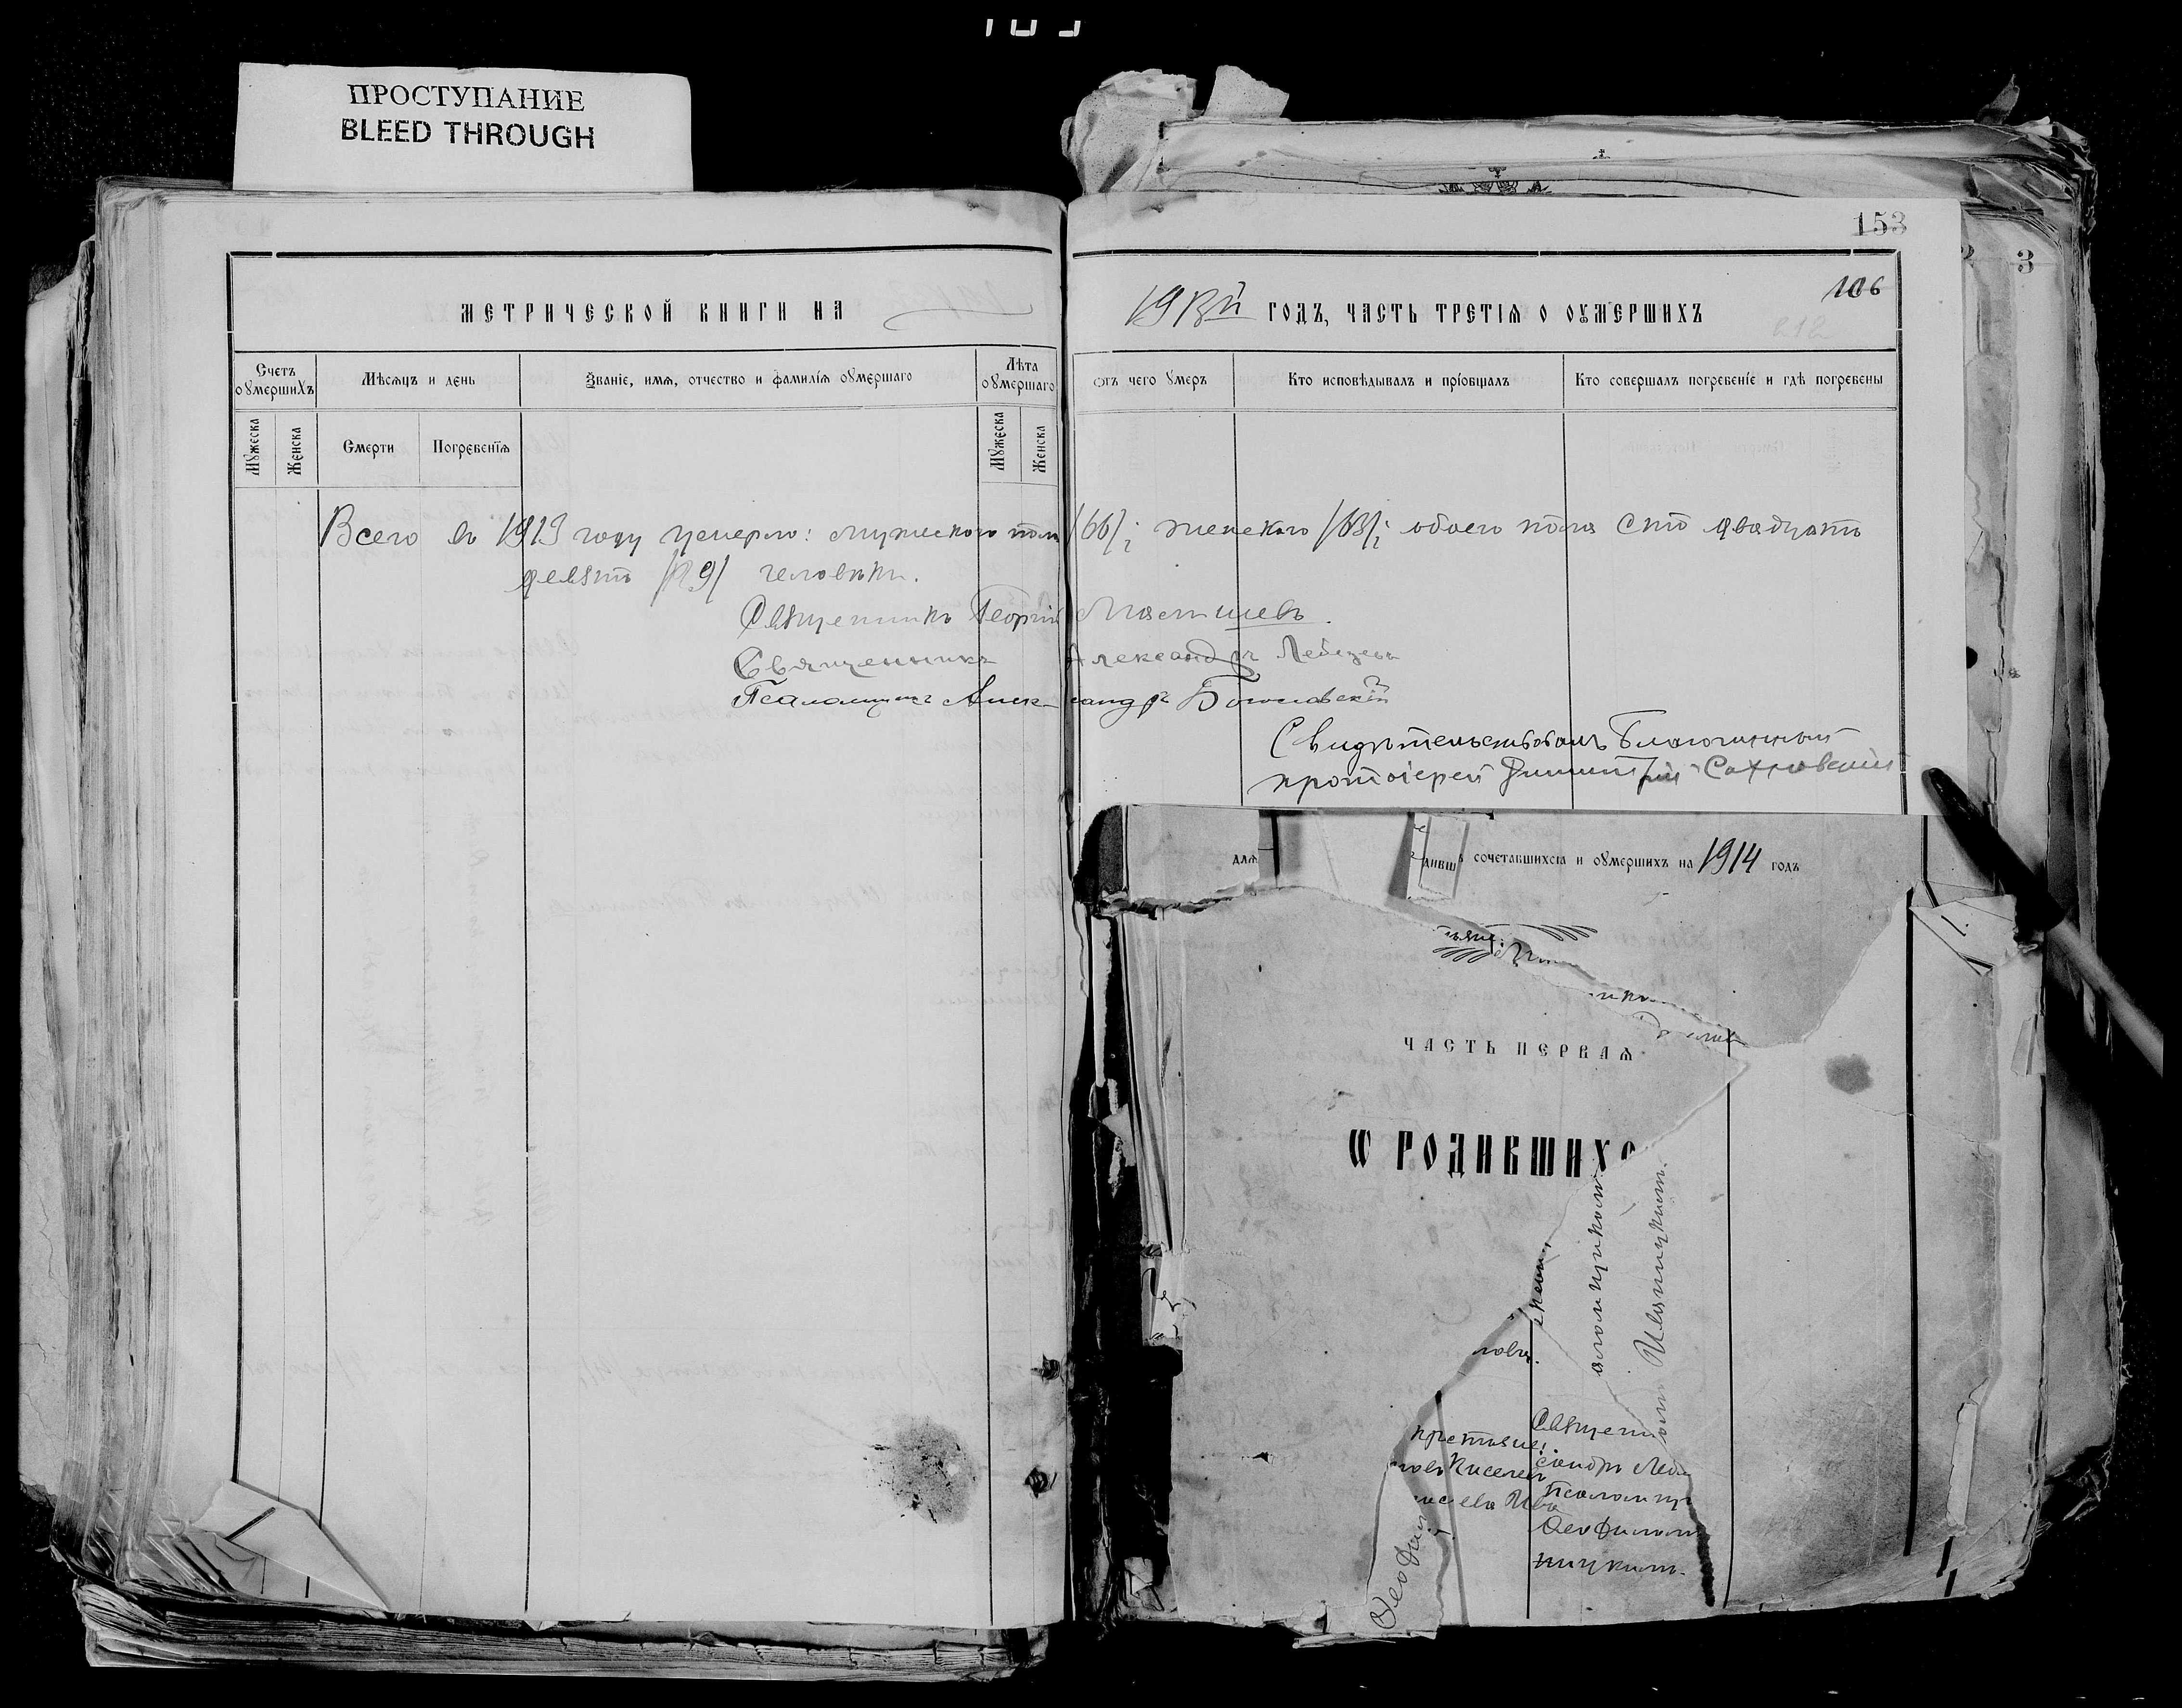 ПРОСТУПАНИЕ
BLEED THROUGH
153
3
106
212
МЕТРИЧЕСКОЙ КНИГИ НА 1913й ГОДЪ, ЧАСТЬ ТРЕТІѦ О ОУМЕРШИХЪ
Счетъ оумершихъ
Мѣсяцъ и день
Званіе, имѧ, отчество и фамиліѧ оумершаго
Лѣта оумершаго
Отъ чего умеръ
Кто исповѣдывалъ и пріобщалъ
Кто совершалъ погребеніе и гдѣ погребены
Мужеска
Женска
Смерти
Погребеніѧ
Мужеска
Женска
Всего въ 1913 году умерло: мужескаго пола /66/; женскаго /63/; обоего пола сто двадцать
девять /129/ человѣкъ.
Священникъ Георгій
Священникъ Александръ Лебедевъ
Псаломщикъ Александръ Богословскій
Свидѣтельствовалъ Благочинный
протоіерей Димитрій
для
сочетавшихсѧ и оумершихъ на 1914 годъ
ЧАСТЬ ПЕРВАѦ
Ѡ РОДИВШИХС
Священ
сандръ Леб
Псаломщ
Ѳеофилом
ницкимъ.